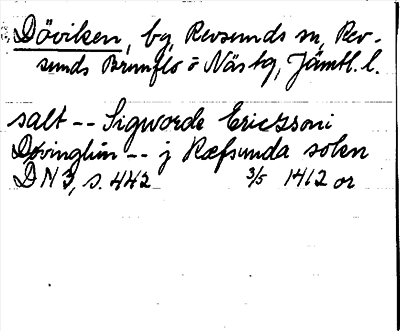 Döviken, by, Revsunds sn, Rev-
sunds Brunflo o Näs tg, Jämtl. l.
salt -- Sigworde Ericzsoni
Døvinghim -- j Ræfsunda sokn
DN 3, s. 442 3/5 1412 or